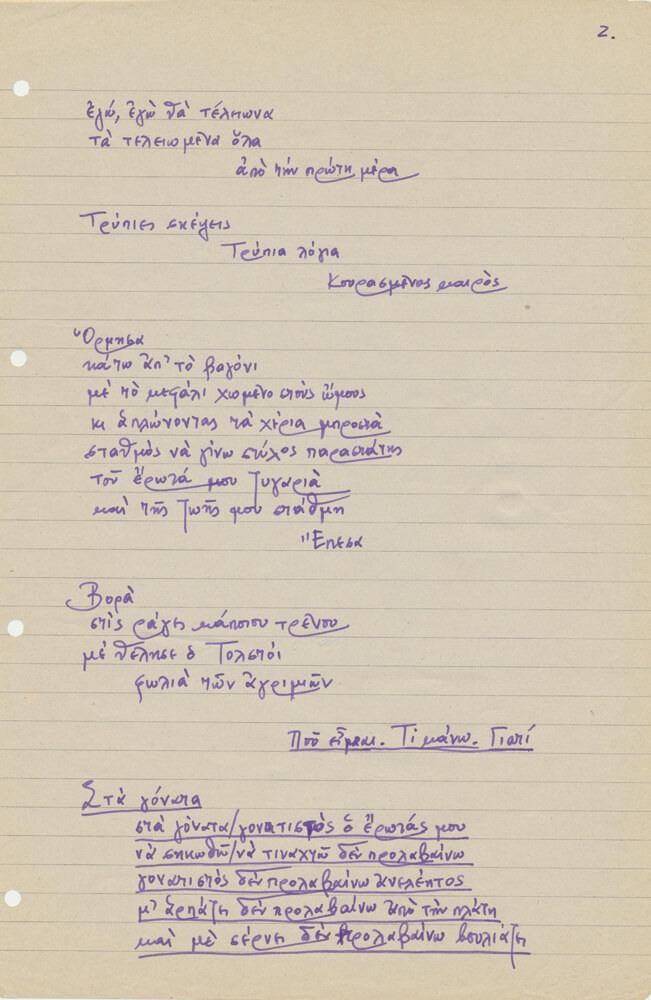 2.
ἐγώ, ἐγὼ θὰ τέλειωνα
τὰ τελειωμένα ὅλα
ἀπὸ τὴν πρώτη μέρα
Τρύπιες σκέψεις
Τρύπια λόγια
Κουρασμένος καιρὸς
Ὅρμησα
κάτω ἀπ' τὸ βαγόνι
μὲ τὸ κεφάλι χωμένο στοὺς ὤμους
κι ἁπλώνοντας τὰ χέρια μπροστὰ
σταθμὸς νὰ γίνω στύλος παραστάτης
τοῦ ἔρωτά μου ζυγαριὰ
καὶ τῆς ζωῆς μου στάθμη
Ἔπεσα
Βορὰ
στὶς ράγες κάποιου τρένου
μὲ θέλησε ὁ Τολστόι
φωλιὰ τῶν ἀγριμιῶν
Ποῦ εἶμαι. Τί κάνω. Γιατί
Στὰ γόνατα
στὰ γόνατα/γονατιστὸς ὁ ἔρωτάς μου
νὰ σηκωθῶ/νὰ τιναχτῶ δὲν προλαβαίνω
γονατιστὸς δὲν προλαβαίνω ἀνελέητος
μ' ἁρπάζει δὲν προλαβαίνω ἀπὸ τὴν πλάτη
καὶ μὲ σέρνει δὲν προλαβαίνω βουλιάζει